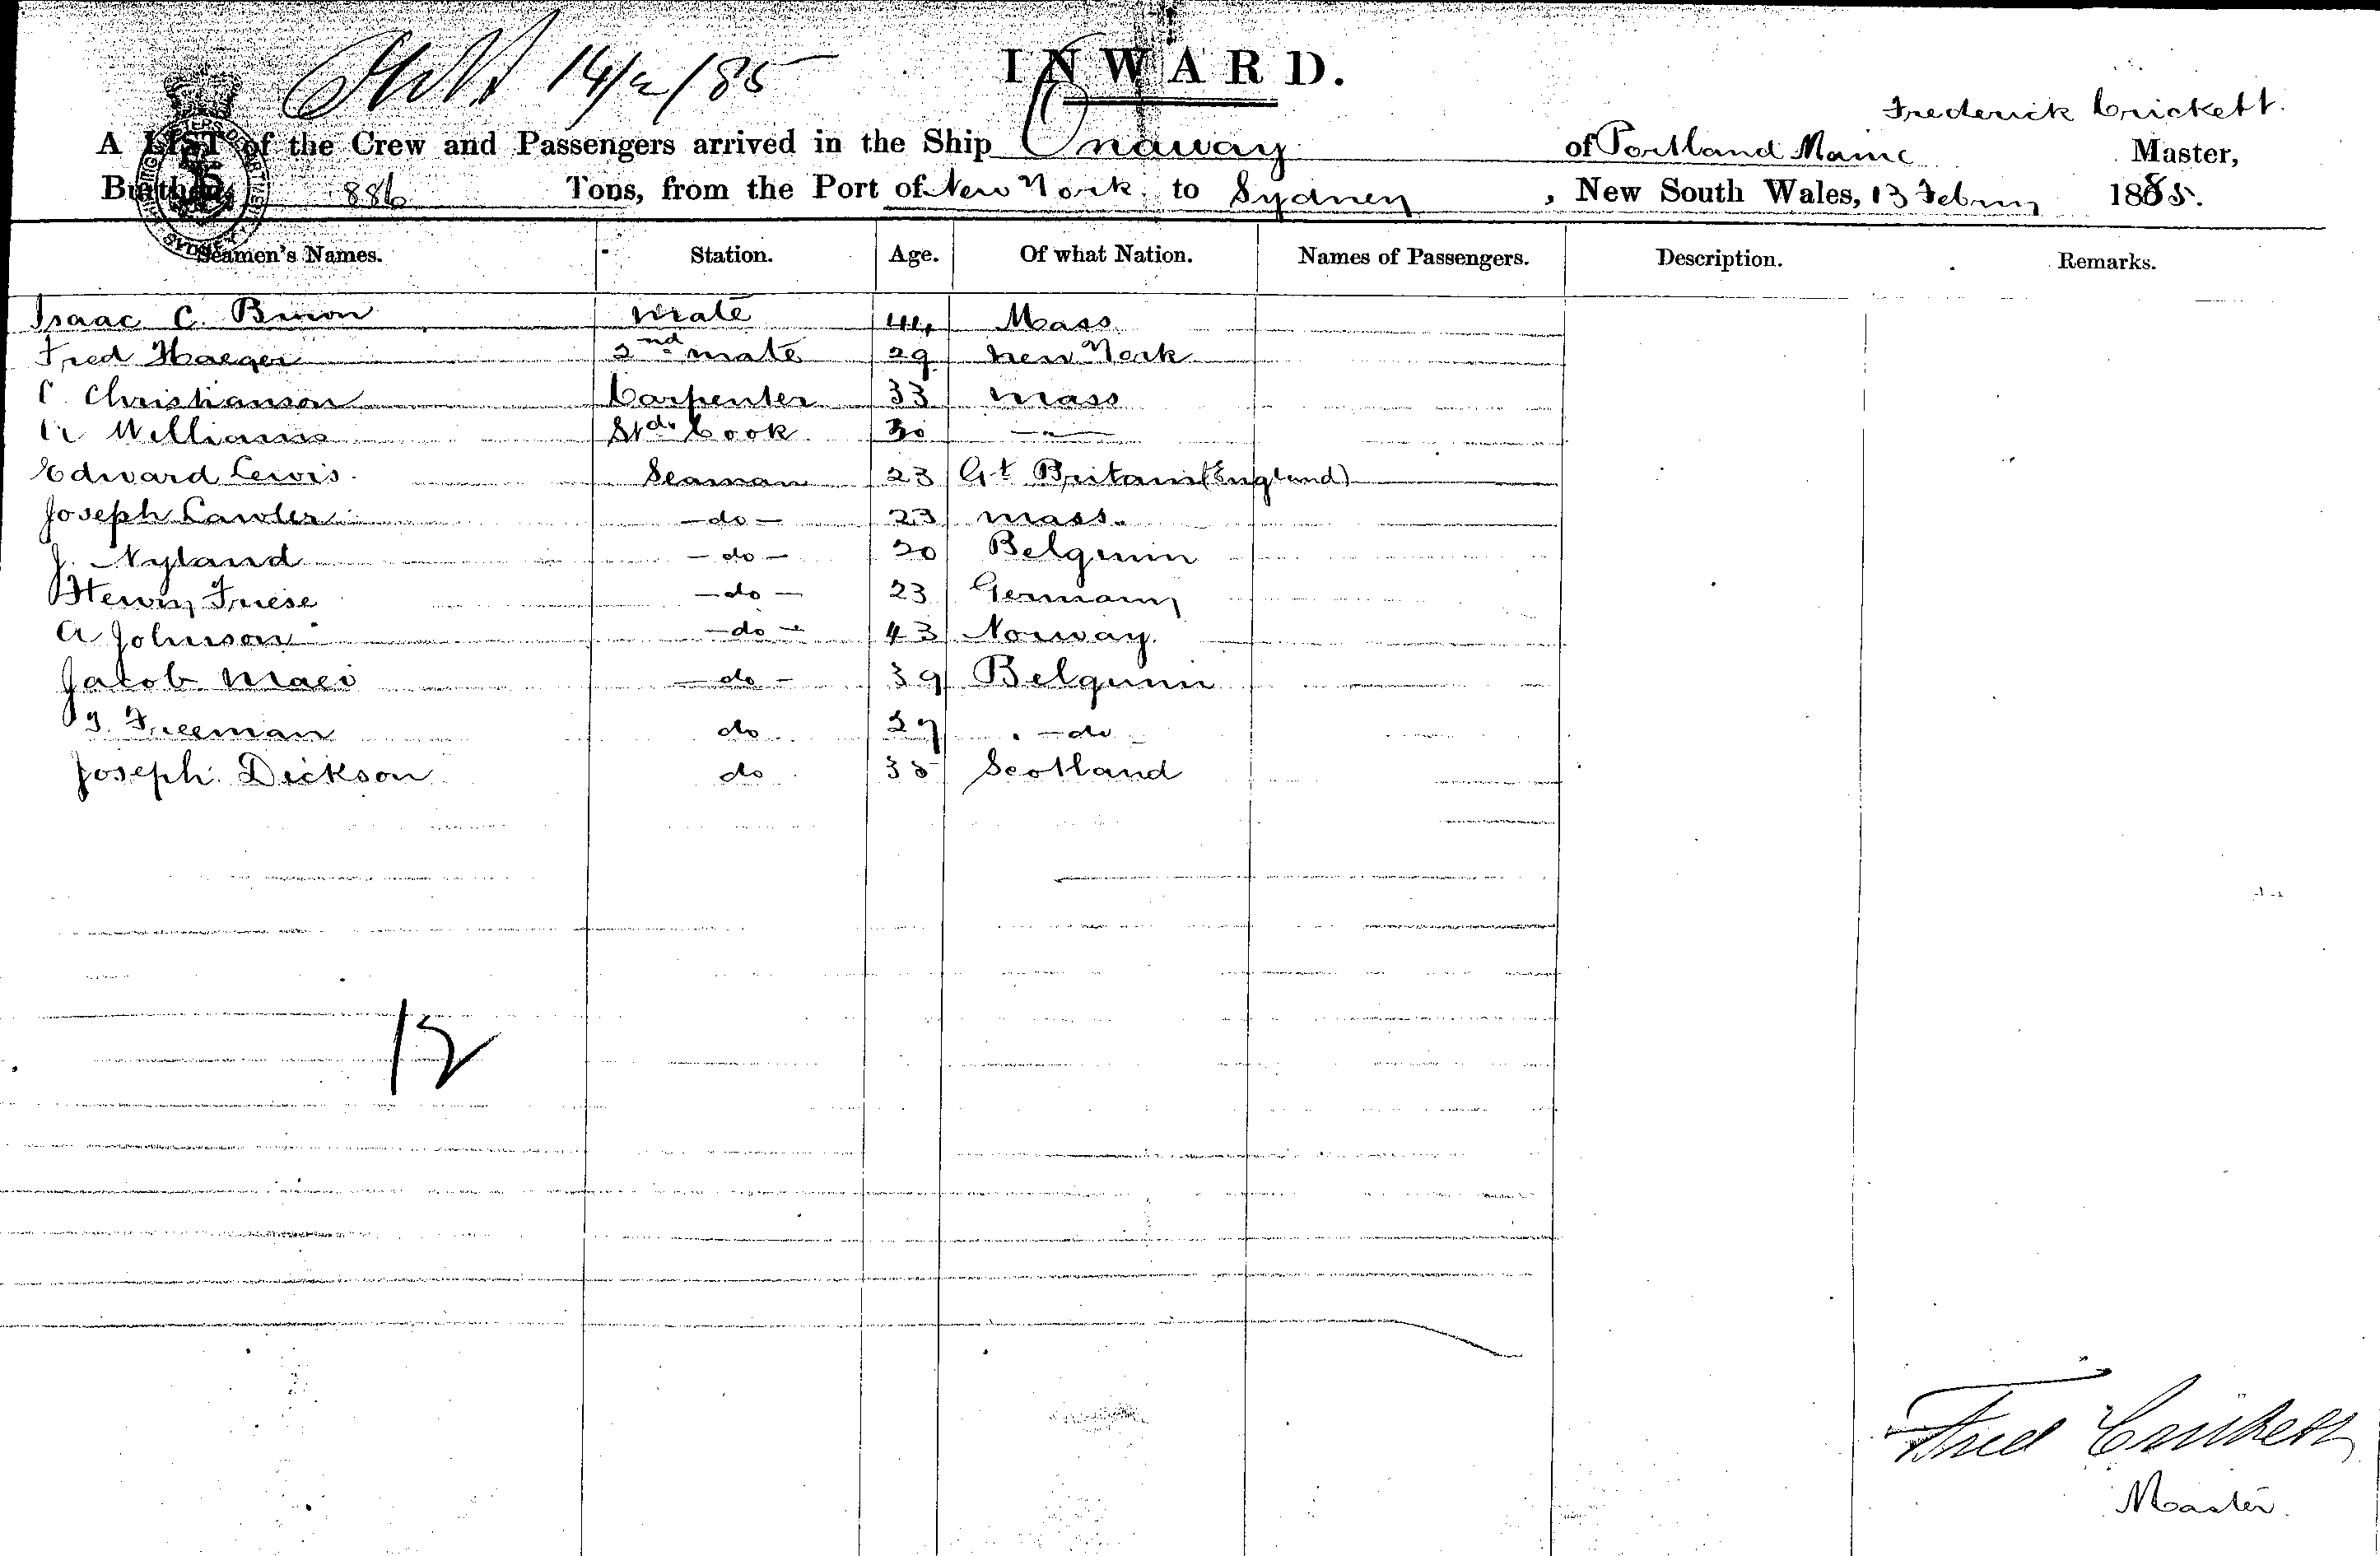 14/2/85
INWARD.
Frederick Crickett.
A LIST of the Crew and Passengers arrived in the Ship Onaway of Portland Maine Master,
Burthen 886 Tons, from the Port of New York to Sydney, New South Wales, 13 Febry 1885.
Seamen's Names. Station. Age. Of what Nation. Names of Passengers. Description. Remarks.
Isaac C. mate 44 Mass
Fred Haeger 2nd mate 29 New York
C. Christianson Carpenter 33 Mass
Williams Std. Cook 30 — " —
Edward Lewis. Seaman 23 Gt Britain (England)
Joseph Lawler - do - 23 mass.
J. Nyland - do - 20 Belguim
Henry Friese - do - 23 Germany
A Johnson - do - 43 Norway.
Jacob - do - 39 Belguim
Freeman do 27 - do
Joseph Dickson do 35 Scotland
12
Fred Crickett
Master.